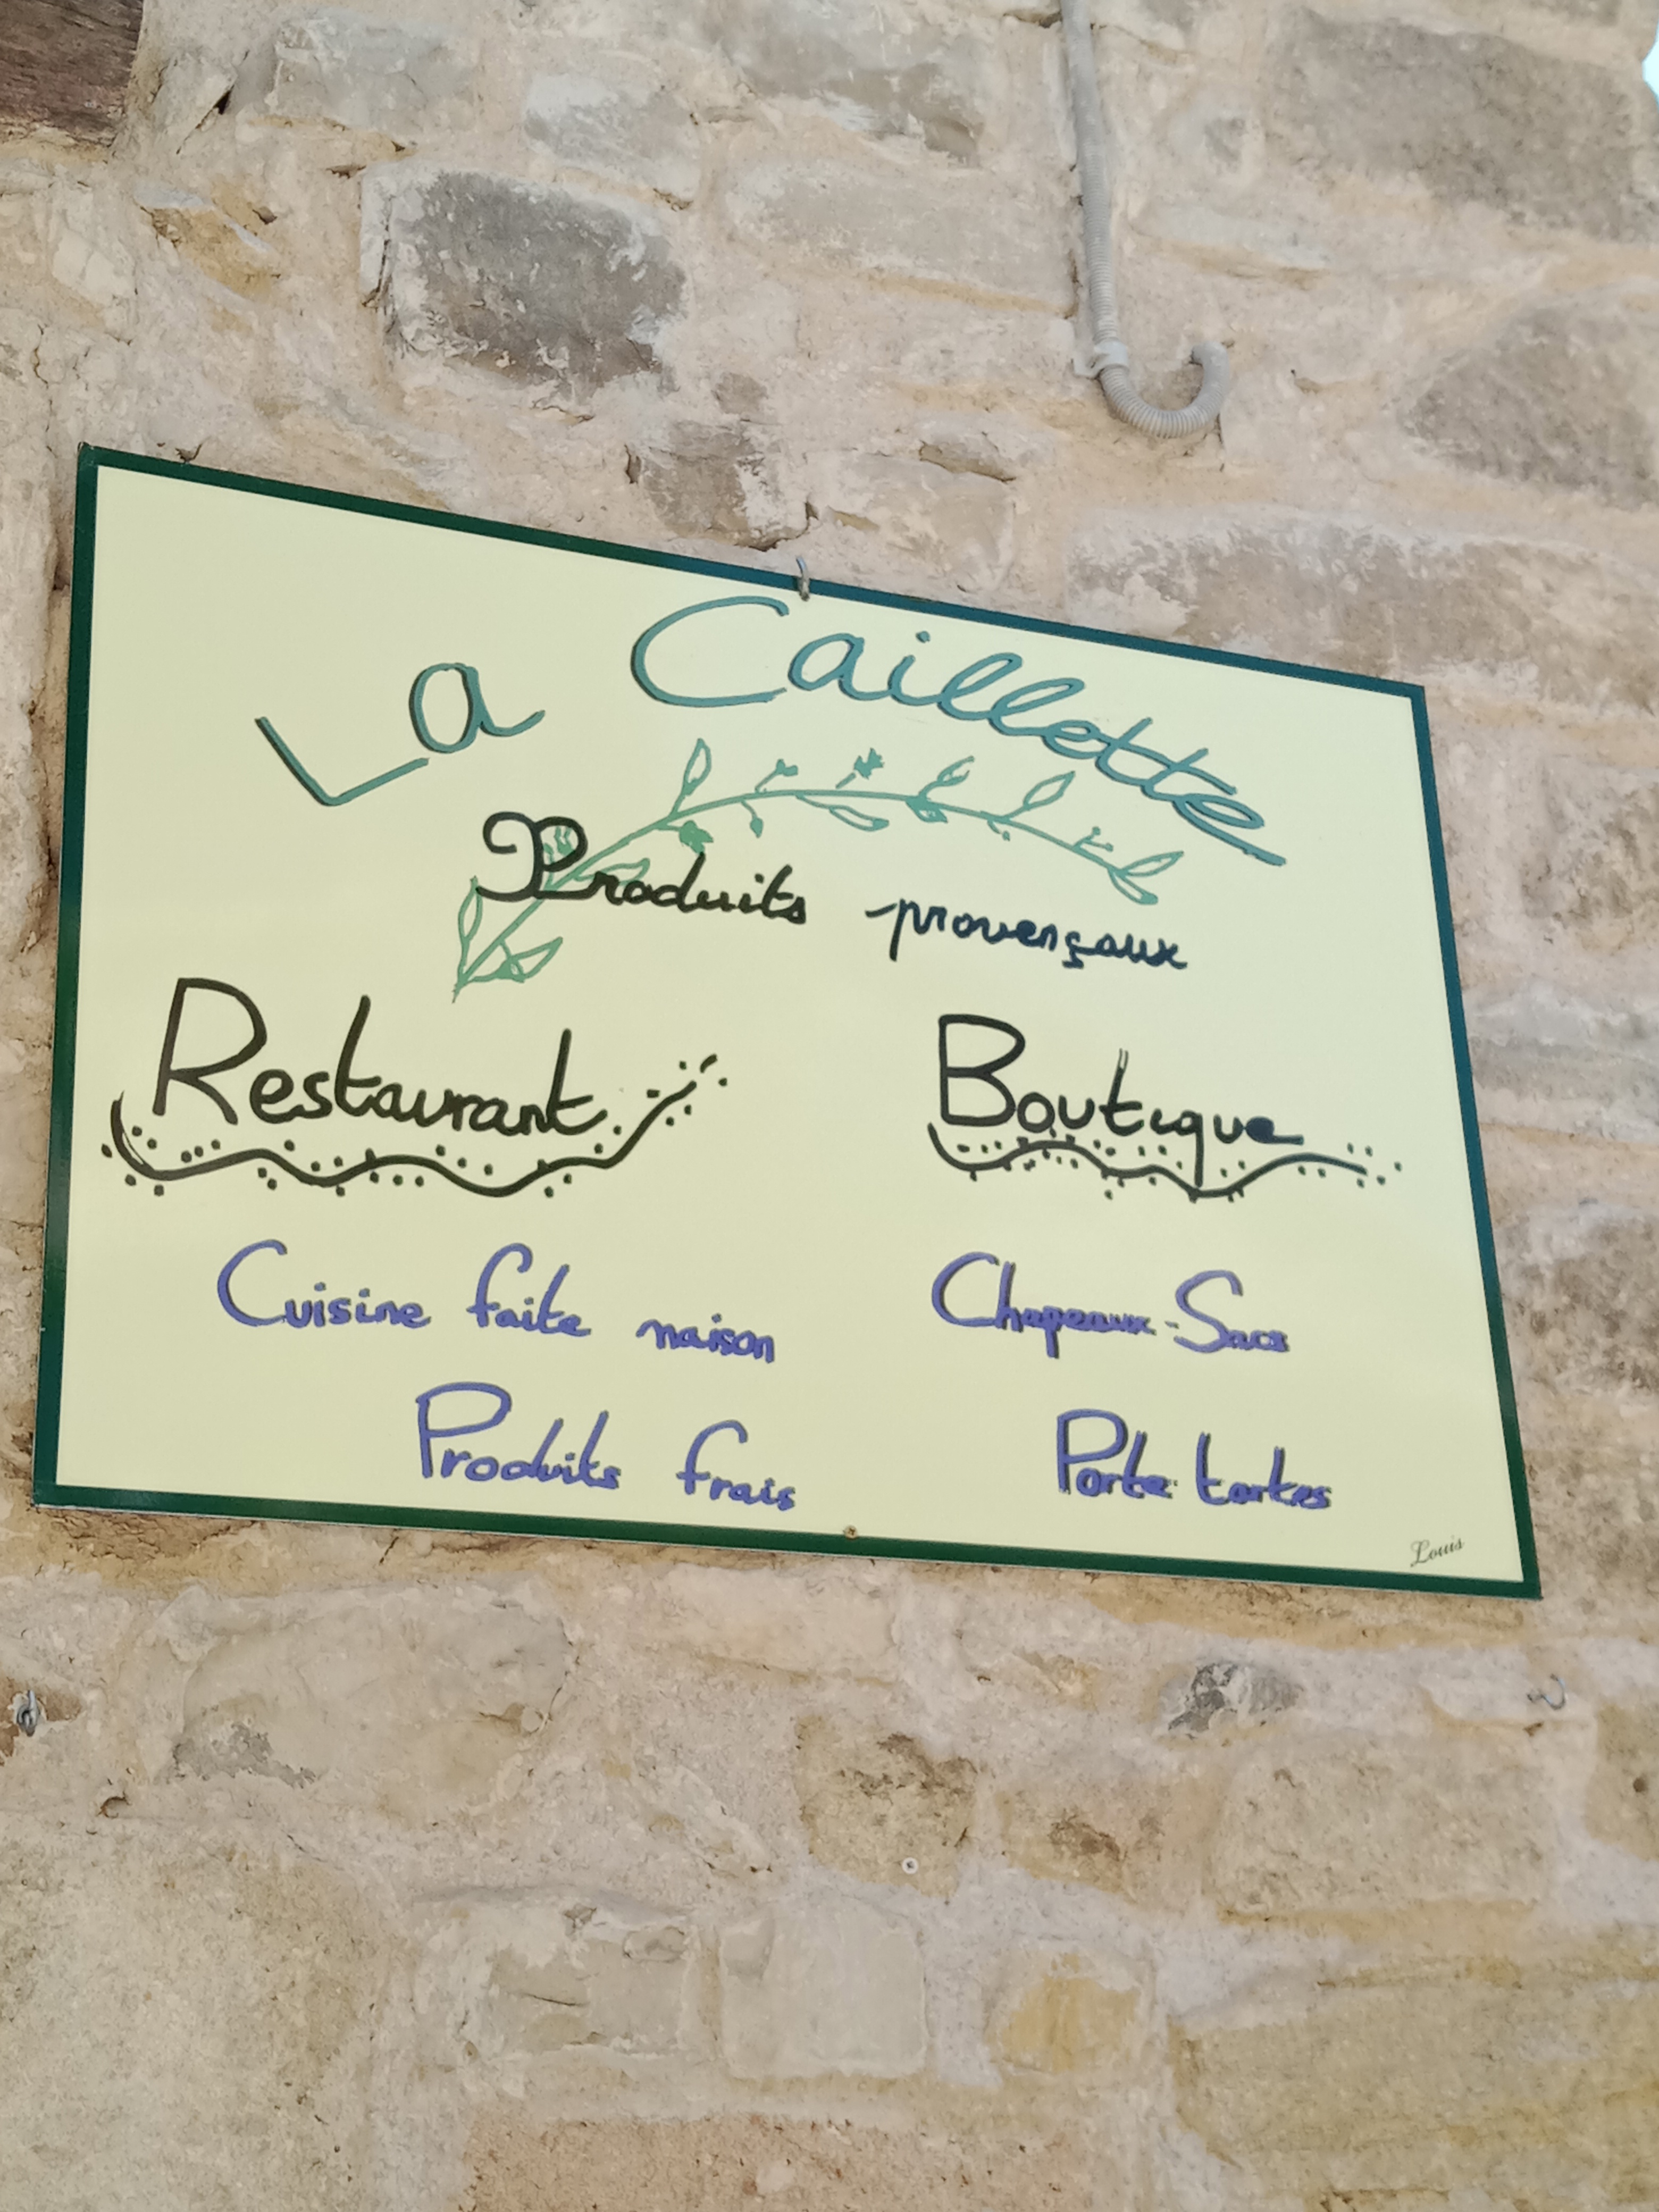 La Caillette
Produits provençaux
Restaurant
Cuisine faite maison
Produits frais
Boutique
Chapeaux - Sacs
Porte tartes
Louis